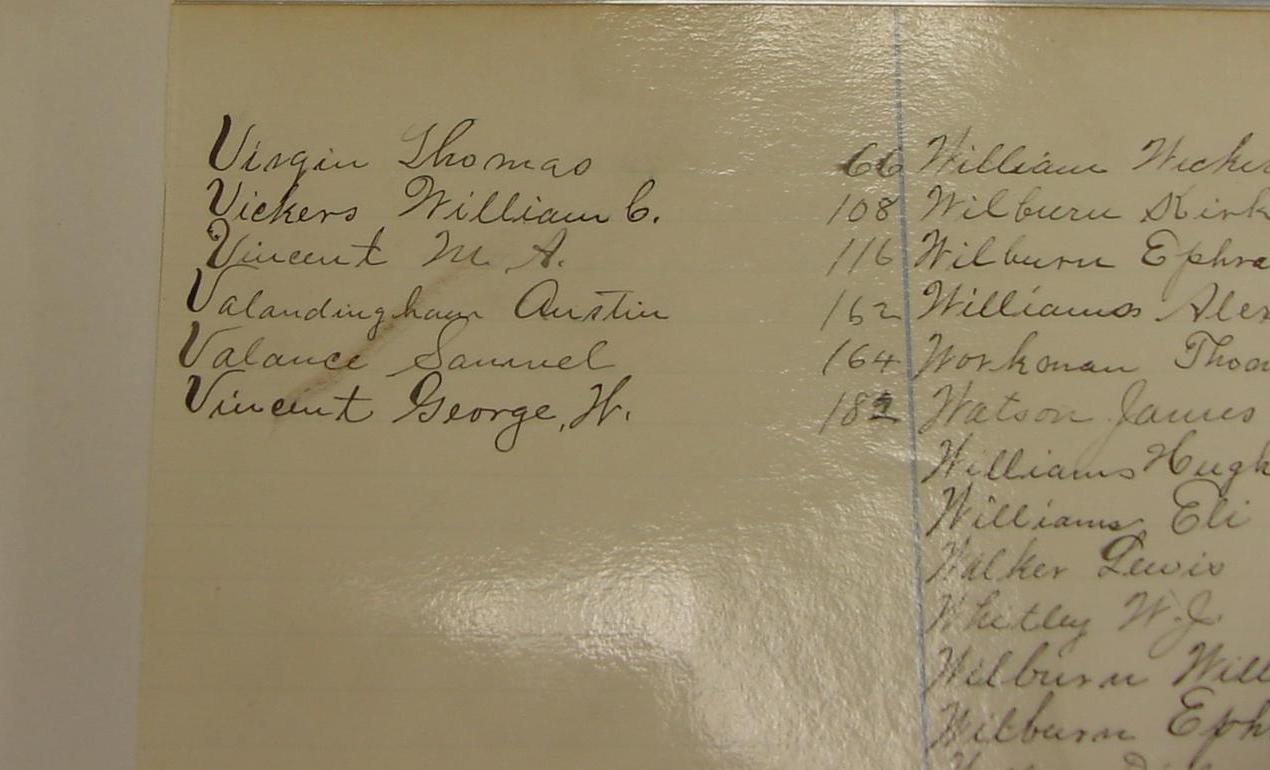 Virgin Thomas 66
Vickers William C. 108
Vincent M. A. 116
Valandingham Austin 162
Valance Samuel 164
Vincent George, W. 182
William
Wilburn Kirk
Wilburn Ephra
Williams Alex
Workman Thom
Watson James
Williams Hugh
Williams Eli
Walker Lewis
Whitley W. J.
Wilburn Will
Wilburn Eph